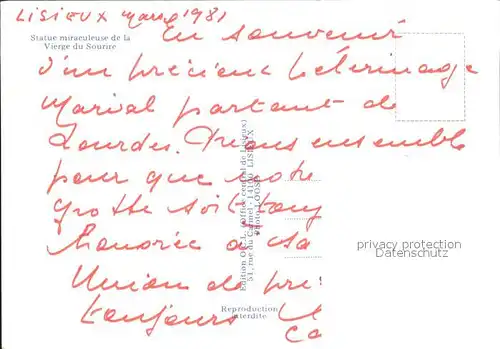 LISIEUX mars 1981
Statue miraculeuse de la
Vierge du Sourire
En souvenir
d'un précieux pélerinage
Marial partant de
Lourdes. Prions ensemble
pour que notre
grotte soit
honorée à sa
Union de
toujours
Edition O.C.L. (Office central de Lisieux)
51, rue du Carmel - 14100 LISIEUX
Photo LOOSE
Reproduction
interdite.
privacy protection
Datenschutz